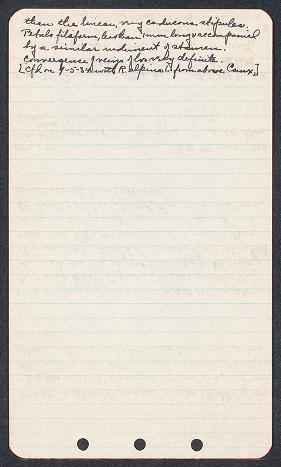 than the linear, very caducous, stipules.
Petals filiform, less than 1 mm long accompanied
by a similar rudiment of stamen.
Convergence of veins of lvs very definite.
[Cfd on 9-5-34 with R. alpina from above Caux.]